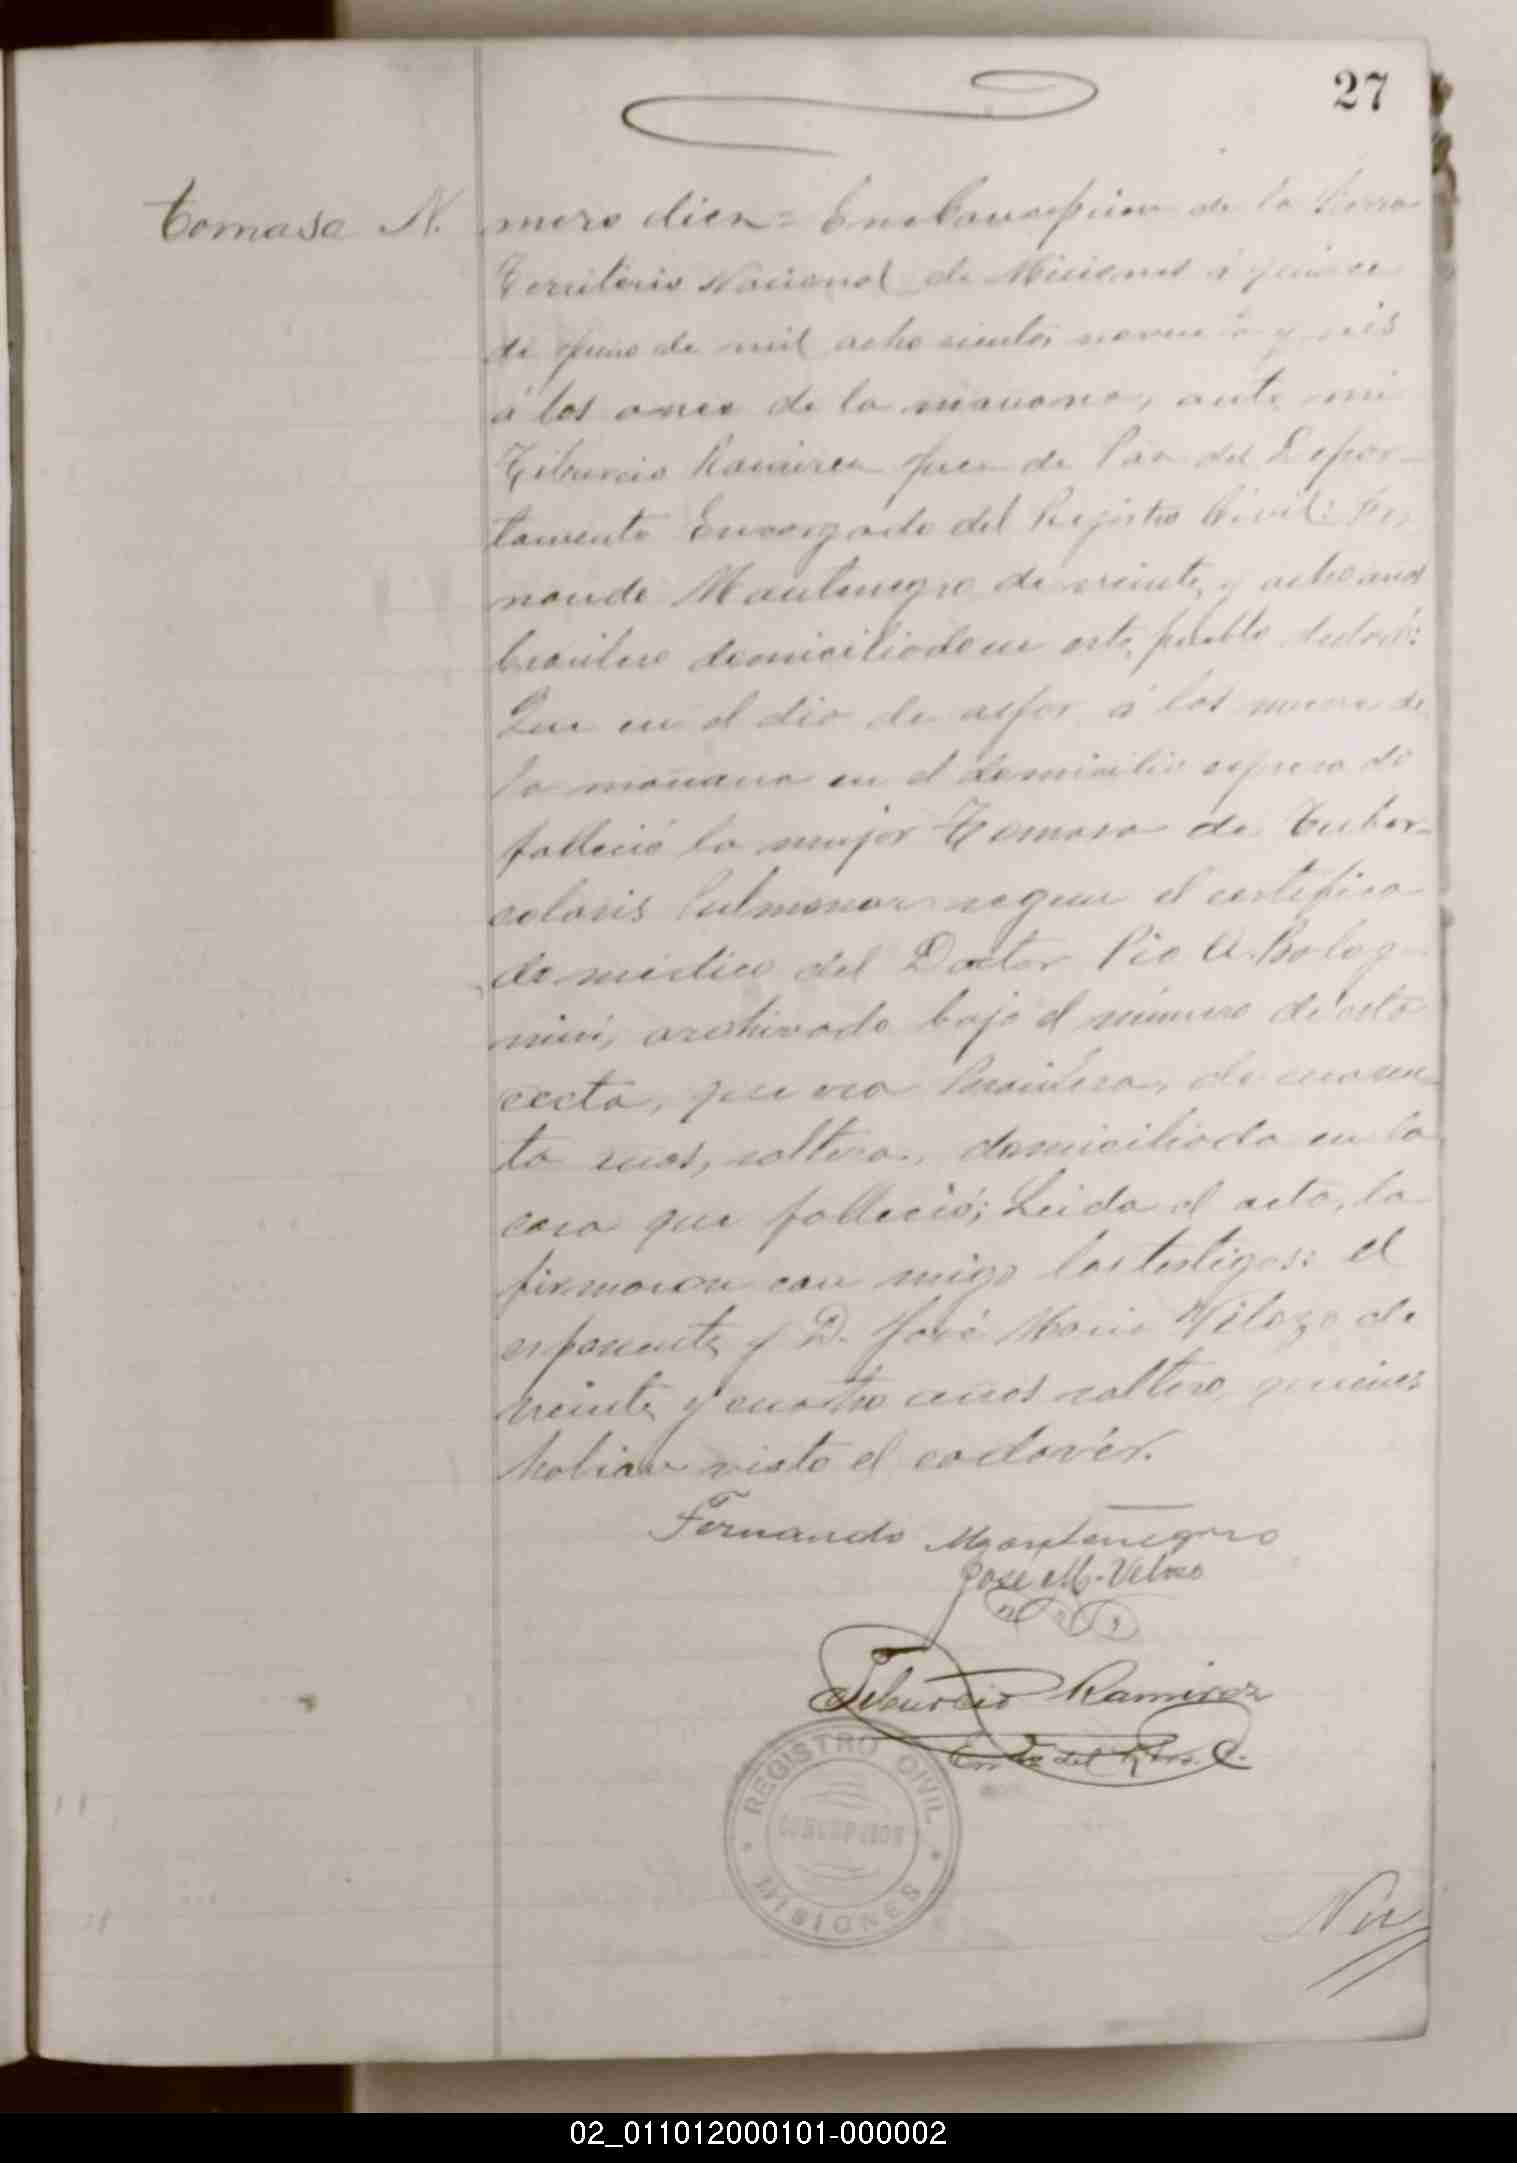 27
Tomasa N.
mero diez= En Concepcion de la Sierra
Territorio Nacional de Misiones á quince
de de mil ocho cientos noventa y seis
á las once de la mañana, ante mi
Tiburcio Ramirez Juez de Paz del Depar-
tamento Encargado del Registro Civil: Fer
nando Montenegro de veinte y ocho anos
brasilero domiciliado en este pueblo declaró:
Que en el dia de á las nueve de
la mañana en el domicilio espresado
falleció la mujer Tomasa de Tuber-
colosis Pulmonar segun el certifica-
do médico del Doctor Pio A. Bolog-
nini, archivado bajo el número de esta
acta, que era Brasilera, de cuaren-
ta anos, soltera, domiciliada en la
casa que falleció; Leida el acta, la
firmaron con migo los testigos: el
esponente y D. José Maria Velozo de
veinte y cuatro años soltero, quienes
habian visto el cadavér.
Fernando Montenegro
Jose M. Velozo
Tiburcio Ramirez
del C.
REGISTRO CIVIL
CONCEPCION
MISIONES
Nu
02_011012000101-000002